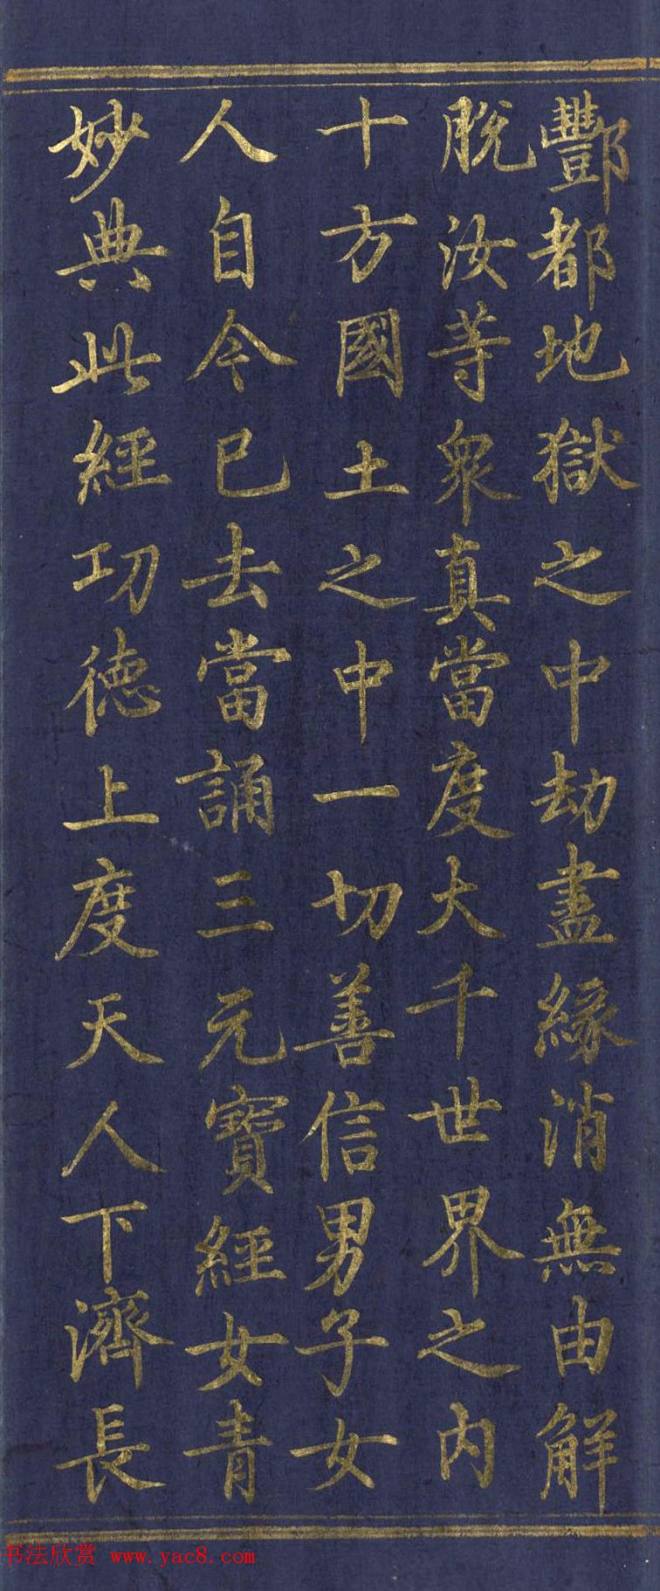 酆都地獄之中劫盡緣消無由解
脫汝等眾真當度大千世界之內
十方國土之中一切善信男子女
人自今已去當誦三元寶經女青
妙典此經功德上度天人下濟長
书法欣赏 www.yac8.com